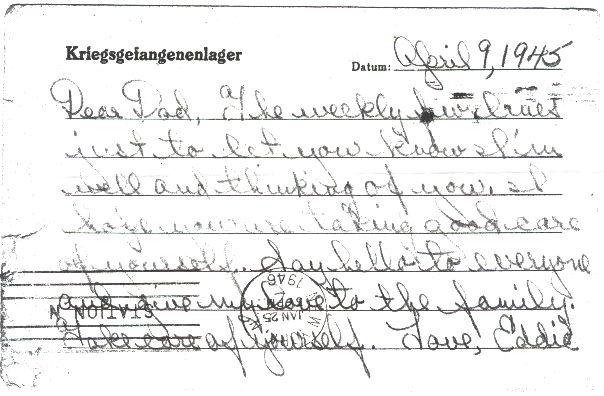 Kriegsgefangenenlager
Datum: April 9, 1945
Dear Dad, The weekly few lines
just to let you know I'm
well and thinking of you. I
hope you're taking good care
of yourself. Say hello to everyone
and give my love to the family.
Take care of yourself. Love, Eddie
STATION N
JAN 25
1946